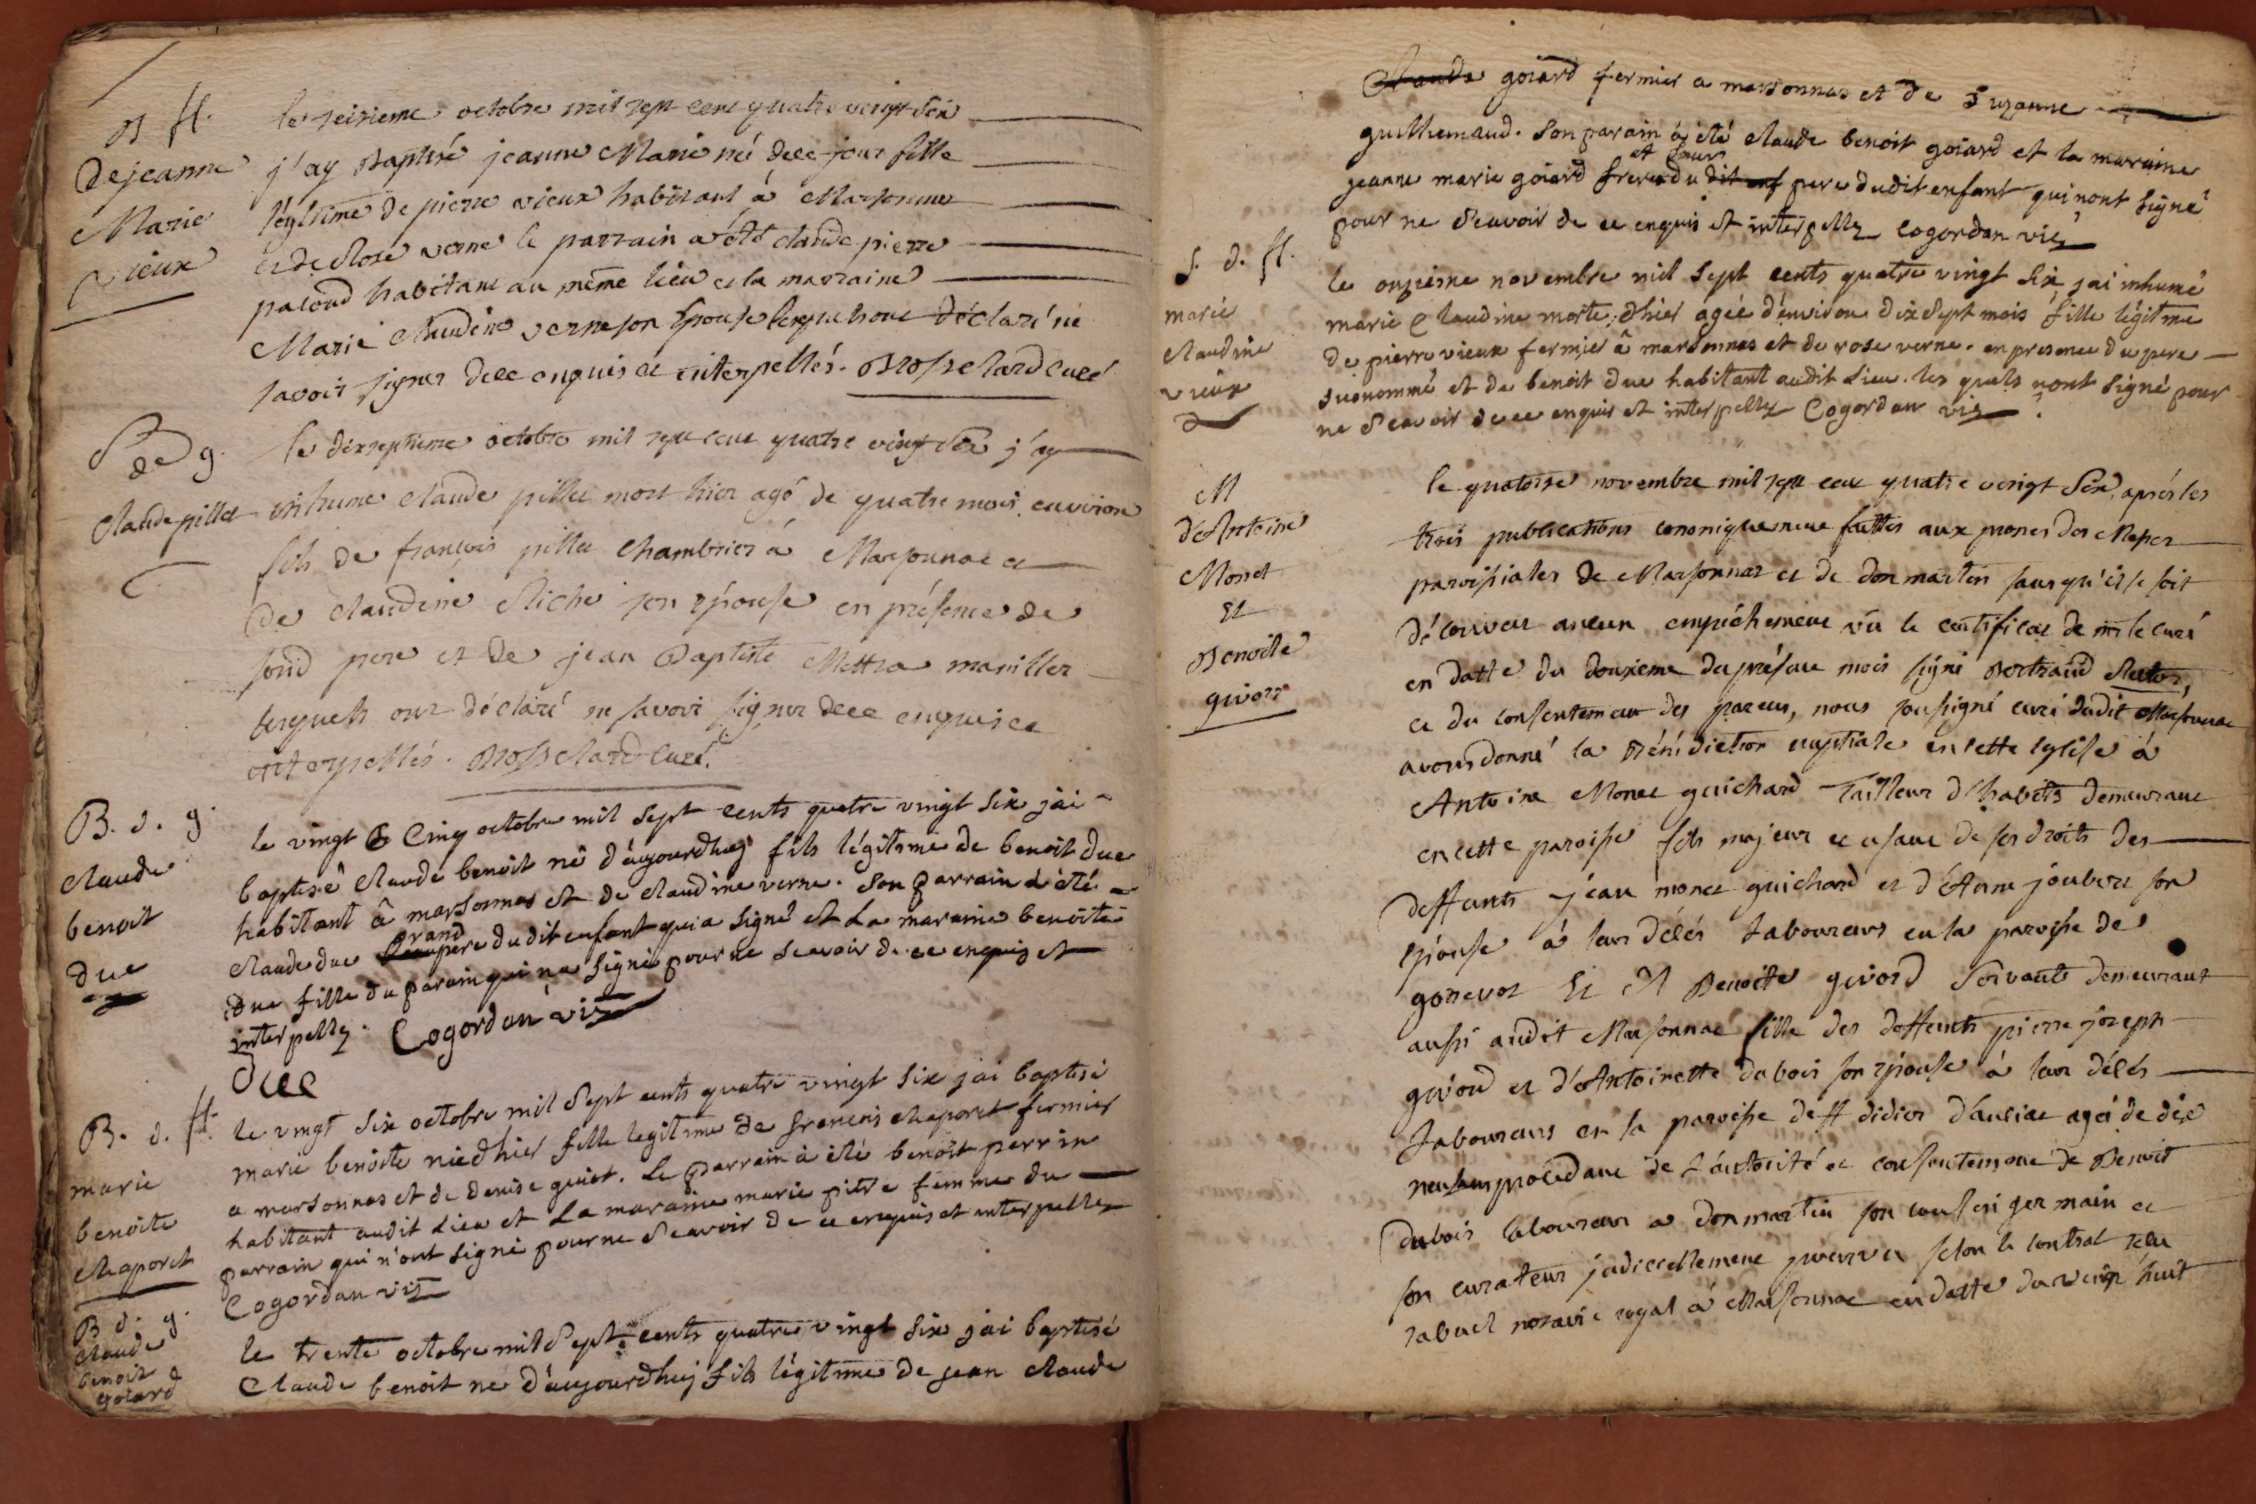 B ff.
de jeanne
Marie
vieux
le seizieme octobre mil sept cent quatre vingt Six
j'ay Baptisé jeanne Marie né dece jour fille
légitime de pierre vieux habitant à Marsonnas
et de Rose verne le parrain a été claude pierre
pacoud habitant au même lieu et la marraine
Marie Claudine verne son Epouse lesquels ont déclaré ne
savoir signer dece enquis et interpellés. Brosselard curé
S
de g.
Claude pillet
le dixseptieme octobre mil sept cent quatre vingt Six j'ay
inhumé claude pillet mort hier agé de quatre mois environ
fils de françois pillet Chambrier à Marsonnas et
de claudine Riche son épouse en présence de
sond pere et de jean Baptiste Mettra manillier
lesquels ont déclaré ne savoir signer dece enquis et
interpellés. Brosselard curé.
B. d. g.
claude
benoit
duc
le vingt Cinq octobre mil sept cents quatre vingt six jai
baptisé claude benoit né d'aujourdhuj fils légitime de benoit duc
habitant â marsonnas et de claudine verne. son parrain à été
grand
claude duc pere dudit enfant qui a signé et la maraine benoite
duc fille du parain qui na signé pour ne scavoir de ce enquis et
interpelly. Cogordan vic
duc
B. d. ff.
marie
benoite
chaporet
le vingt six octobre mil sept cents quatre vingt six jai baptisé
marie benoite née d'hier fille legitime de francois chaporet fermier
a marsonnas et de denise guiot. le parrain à été benoit perrin
habitant audit lieu et la maraine marie pitre femme du
parrain qui n'ont signé pour ne scavoir de ce enquis et interpelly
Cogordan vic
B d. g.
claude
benoit
goiard
le trente octobre mil sept cents quatre vingt six jai baptisé
Claude benoit ne d'aujourdhuj fils légitime de jean claude
Claude goiard fermier a marsonnas et de Suzanne
guillemaud. son parain à été claude benoit goiard et la marraine
et sœur
jeanne marie goiard frere du dit enf pere dudit enfant qui nont signé
pour ne scavoir de ce enquis et interpelly Cogordan vic
S. d. ff.
marie
claudine
vieux
le onzieme novembre mil sept cents quatre vingt six jai inhumé
marie Claudine morte d'hier agée d'environ dix sept mois fille légitme
de pierre vieux fermier â marsonnas et de rose verne. en presence du pere
susnommé et de benoit duc habitant audit lieu. les quels nont signé pour
ne scavoir de ce enquis et interpelly Cogordan vic
M
d'Antoine
Monet
Et
Benoite
givord
le quatorze novembre mil sept cent quatre vingt Six, après les
trois publications cononiquement faittes aux prones des Messes
paroissiales de Marsonnas et de donmartin sans qu'il se soit
découvert aucun empéchement vû le certificat de mr le curé
en datte du douzieme du présent mois signé Bertraud
et du consentement des parens, nous soussigné curé dudit Marsonnas
avons donné la Bénédiction nuptiale en cette eglise á
Antoine Monet guichard Tailleur d'habits demeurant
en cette paroisse fils majeur et usant de ses droits des
deffunts jean monet guichard et d'Anne joubert son
épouse á leur décés Laboureurs en la paroisse de
gorrevot Et Benoite givord servante demeurant
aussi audit Marsonnas fille des deffunts pierre joseph
givord et d'Antoinette dubois son épouse á leur décés
Laboureurs en la paroisse de St didier d'aussiat agée de dix
neuf ans procédant de l'autorité et consentement de Benoit
dubois laboureur a donmartin son cousin germain et
son curateur judiciellement pourvu selon le contrat recu
rabuel notaire royal á Marsonnas en datte du vingt huit